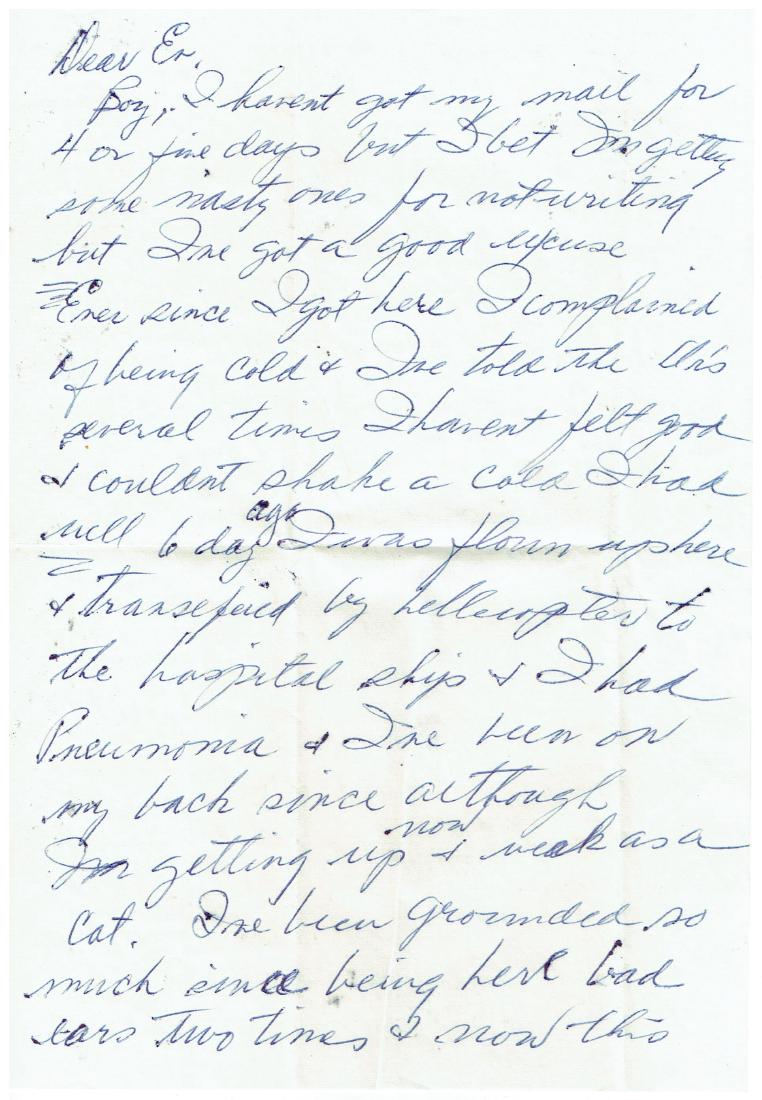 Dear Er.
Boy, I havent got my mail for
4 or five days but I bet Im getting
some nasty ones for not writing
but I've got a good excuse
Ever since I got here I complained
of being cold & I've told the Drs
several times I havent felt good
& couldnt shake a cold I had
well 6 day ago I was flown up here
& transefered by hellecopter to
the hospital ship & I had
Pneumonia & I've been on
my back since although
Im getting up now & weak as a
Cat. I've been grounded so
much since being here bad
ears two times & now this